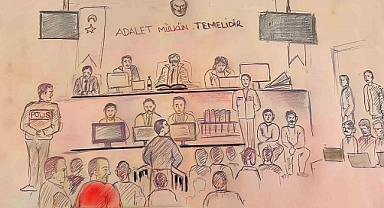 ADALET MÜLKÜN TEMELİDİR
POLİS